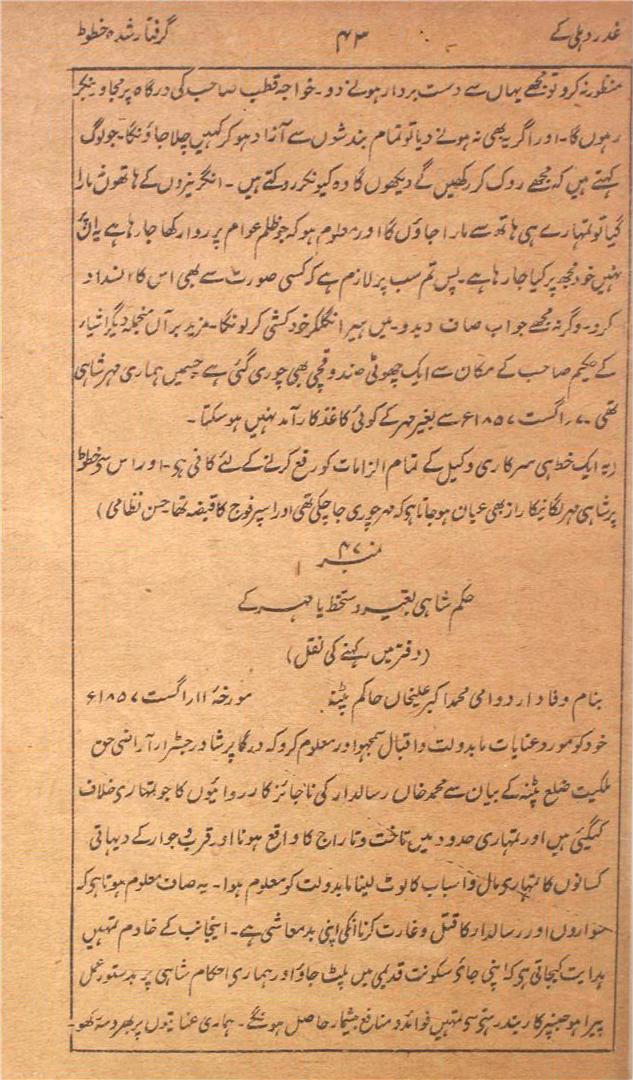 غدر دہلی کے ۴۳ گرفتار شدہ خطوط
منظور نہ کرو تو مجھے یہاں سے دست بردار ہونے دو۔ خواجہ قطب صاحب کی درگاہ پر مجاور بنکر
رہوں گا۔ اور اگر یہ بھی نہ ہونے دیا تو تمام بندشوں سے آزاد ہو کر کہیں چلا جاؤنگا۔ جو لوگ
کہتے ہیں کہ مجھے روک کر رکھیں گے دیکھوں گا وہ کیونکر روکتے ہیں۔ انگریزوں کے ہاتھوں نہ مارا
گیا تو تمہارے ہی ہاتھ سے مارا جاؤں گا اور معلوم ہو کہ جو ظلم عوام پر روا رکھا جا رہا ہے یہ اُن
نہیں خود مجھ پر کیا جا رہا ہے۔ پس تم سب پر لازم ہے کہ کسی صورت سے بھی اس کا انسداد
کرو۔ وگرنہ مجھے جواب صاف دیدو۔ میں ہیرا نگلکر خودکشی کر لونگا۔ مزید برآں منجملہ دیگر اشیاء
کے حکیم صاحب کے مکان سے ایک چھوٹی صندوقچی بھی چوری گئی ہے جسمیں ہماری مہر شاہی
تھی۔ ۷ اگست ۱۸۵۷ء سے بغیر مہر کے کوئی کاغذ کارآمد نہیں ہو سکتا۔
(یہ ایک خط ہی سرکاری وکیل کے تمام الزامات کو رفع کرنے کے لئے کافی ہے۔ اور اس سے خطوط
پر شاہی مہر لگانیکا راز بھی عیاں ہو جاتا ہے کہ مہر چوری جا چکی تھی اور اسپر فوج کا قبضہ تھا حسن نظامی)
نمبر ۴۷
حکم شاہی بغیر دستخط یا مہر کے
(دفتر میں رکھنے کی نقل)
بنام وفادار دوامی محمد اکبر علیخاں حاکم پٹنہ مورخہ ۱۱ اگست ۱۸۵۷ء
خود کو مورد عنایات مابدولت واقبال سمجھو اور معلوم کرو کہ درگا پرشاد رجسٹرار آراضی حق
ملکیت ضلع پٹنہ کے بیان سے محمد خاں رسالدار کی ناجائز کارروائیوں کا جو تمہاری خلاف
کیگئی ہیں اور تمہاری حدود میں تاخت و تاراج کا واقع ہونا اور قرب و جوار کے دیہاتی
کسانوں کا تمہاری مال و اسباب کا لوٹ لینا مابدولت کو معلوم ہوا۔ یہ صاف معلوم ہوتا ہے کہ
سواروں اور رسالدار کا قتل و غارت کرنا انکی اپنی بدمعاشی ہے۔ اینجانب کے خادم تمہیں
ہدایت کیجاتی ہے کہ اپنی جائے سکونت قدیمی میں پلٹ جاؤ اور ہماری احکام شاہی پر بدستور عمل
پیرا ہو جنپر کاربند رہنے سے تمہیں فوائد و منافع بیشمار حاصل ہونگے۔ ہماری عنایتوں پر بھروسہ رکھو۔